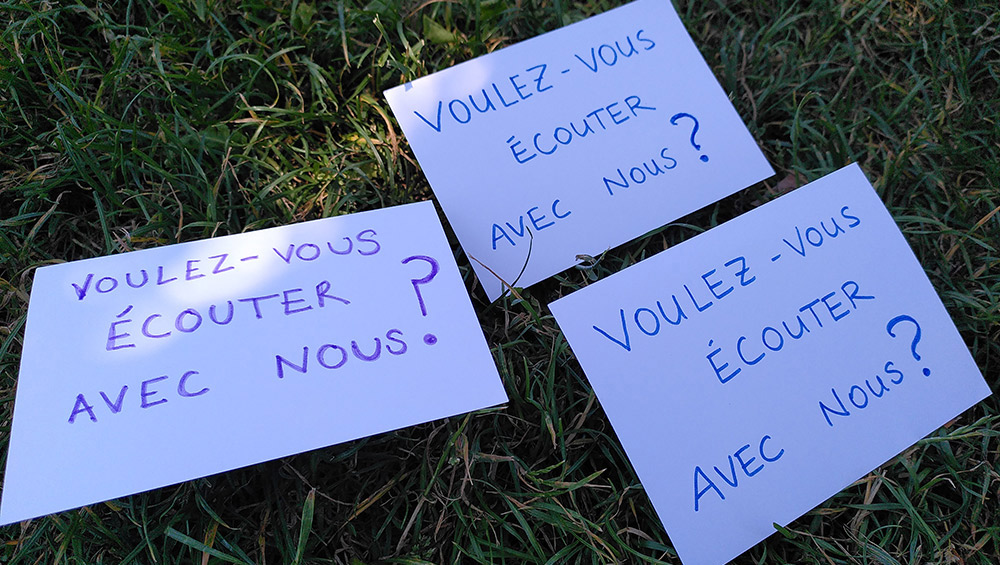 VOULEZ-VOUS
ÉCOUTER
AVEC NOUS?
VOULEZ-VOUS
ÉCOUTER ?
AVEC NOUS.
VOULEZ-VOUS
ÉCOUTER
AVEC NOUS?